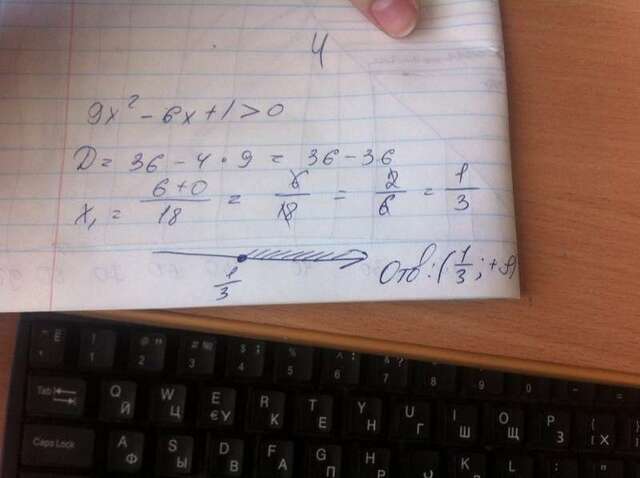 4
9x² - 6x + 1 > 0
D = 36 - 4 · 9 = 36 - 36
x₁ = (6+0)/18 = 6/18 = 2/6 = 1/3
1/3
Отв: (1/3; +∞)
Tab
Q Й W Ц E У €У R К T Е Y Н U Г I Ш O Щ P З { [ Х
Caps Lock
A Ф S Ы D В F А G П H Р J О K Л L